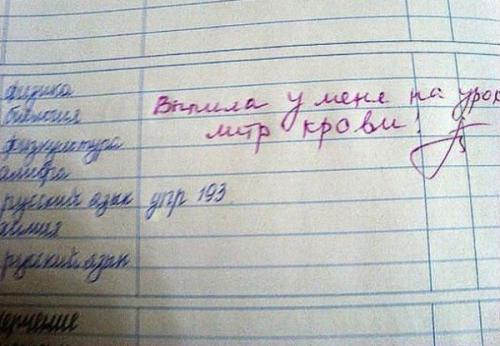 физика
биология Выпила у меня на урок
физкультура литр крови!
алгебра
русский язык упр 193.
химия
русский язык
черчение